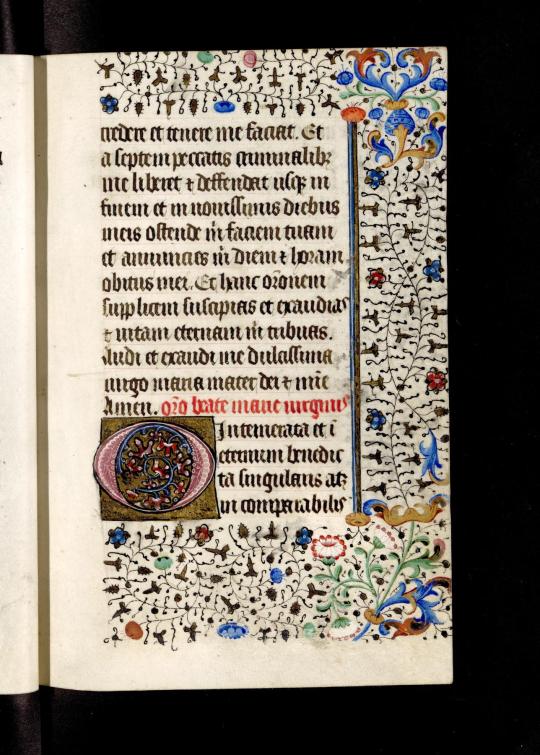 credere et tenere me faciat. Et
a septem peccatis criminalibꝫ
me liberet ⁊ deffendat usqꝫ in
finem et in nouissimis diebus
meis ostende m̅ faciem tuam
et annuncies m̅ diem ⁊ horam
obitus mei. Et hanc or̅onem
supplicem suscipias et exaudias
⁊ uitam eternam m̅ tribuas.
Audi et exaudi me dulcissima
uirgo maria mater dei ⁊ mi̅e
Amen. or̅o beate marie uirginis
O Intemerata et i̅
eternum benedic
ta singularis atqꝫ
incomparabilis